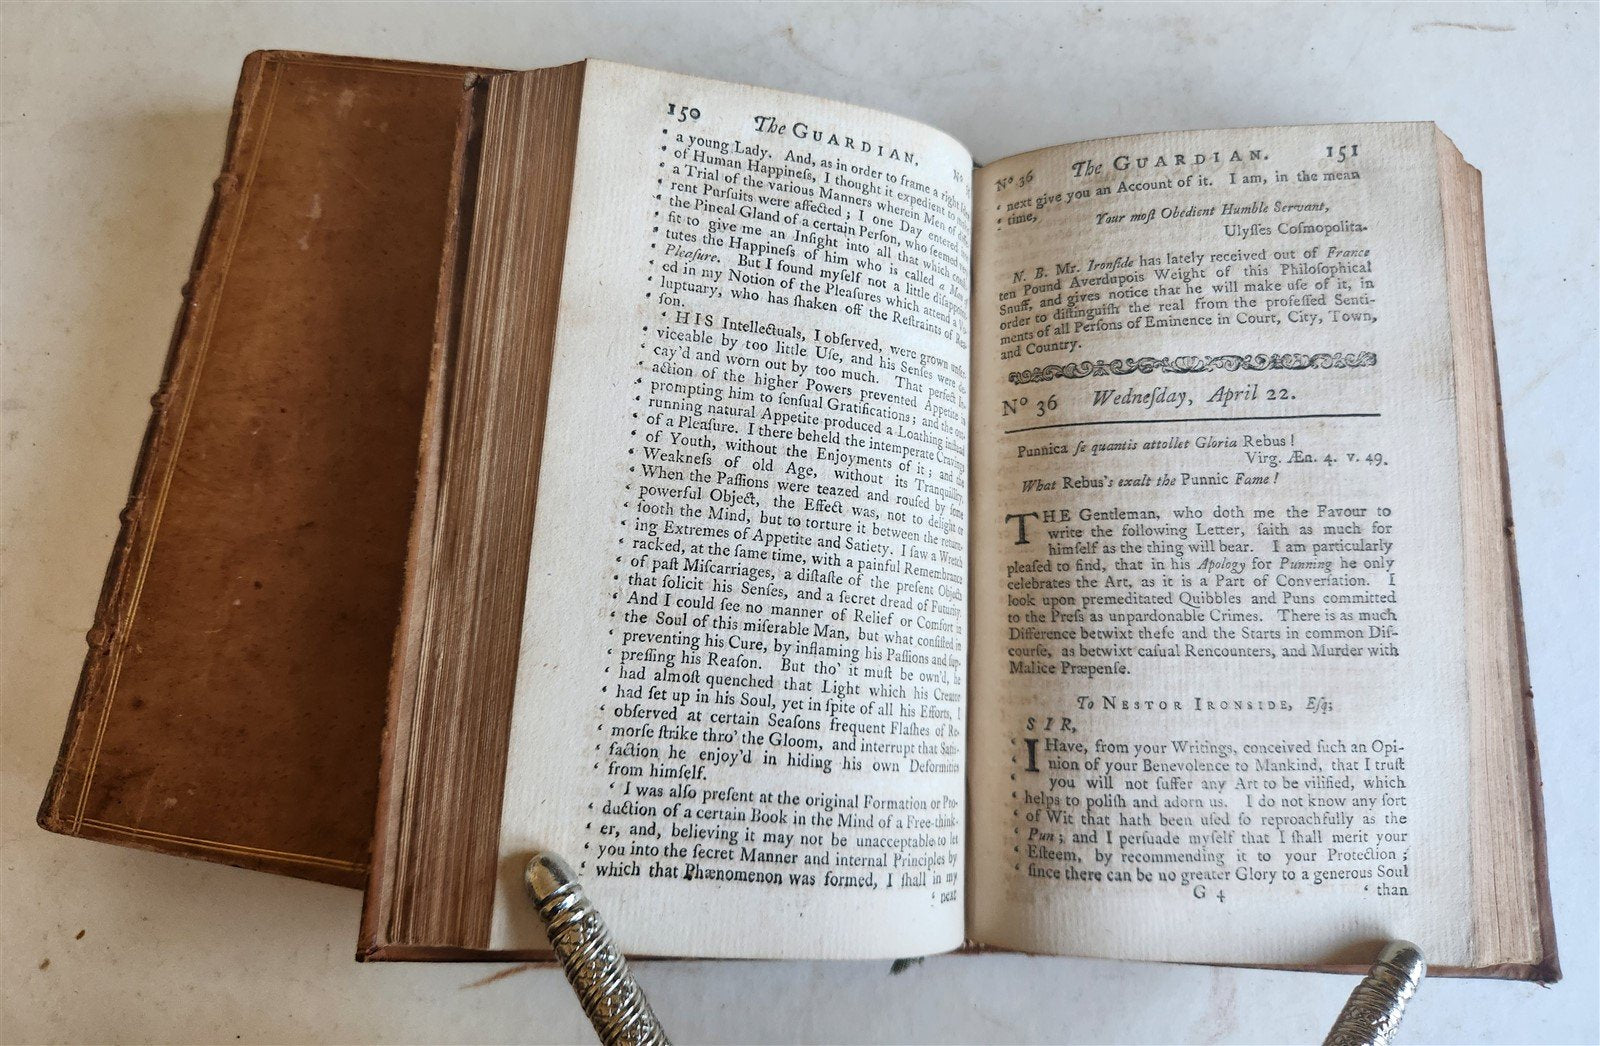 150 The GUARDIAN. Nº
‘ a young Lady. And, as in order to frame a right
‘ of Human Happineſs, I thought it expedient to
‘ a Trial of the various Manners wherein Men of
‘ rent Purſuits were affected; I one Day entered
‘ the Pineal Gland of a certain Perſon, who ſeemed very
‘ fit to give me an Inſight into all that which
‘ tutes the Happineſs of him who is called a Man of
‘ Pleaſure. But I found myſelf not a little
‘ ed in my Notion of the Pleaſures which attend a
‘ luptuary, who has ſhaken off the Reſtraints of Rea-
‘ ſon.
‘ HIS Intellectuals, I obſerved, were grown
‘ viceable by too little Uſe, and his Senſes were de-
‘ cay’d and worn out by too much. That perfect
‘ action of the higher Powers prevented Appetite in
‘ prompting him to ſenſual Gratifications; and the out-
‘ running natural Appetite produced a Loathing inſtead
‘ of a Pleaſure. I there beheld the intemperate Cravings
‘ of Youth, without the Enjoyments of it; and the
‘ Weakneſs of old Age, without its Tranquillity.
‘ When the Paſſions were teazed and rouſed by ſome
‘ powerful Object, the Effect was, not to delight or
‘ ſooth the Mind, but to torture it between the return-
‘ ing Extremes of Appetite and Satiety. I ſaw a Wretch
‘ racked, at the ſame time, with a painful Remembrance
‘ of paſt Miſcarriages, a diſtaſte of the preſent Objects
‘ that ſolicit his Senſes, and a ſecret dread of Futurity.
‘ And I could ſee no manner of Relief or Comfort in
‘ the Soul of this miſerable Man, but what conſiſted in
‘ preventing his Cure, by inflaming his Paſſions and ſup-
‘ preſſing his Reaſon. But tho’ it muſt be own’d, he
‘ had almoſt quenched that Light which his Creator
‘ had ſet up in his Soul, yet in ſpite of all his Efforts, I
‘ obſerved at certain Seaſons frequent Flaſhes of Re-
‘ morſe ſtrike thro’ the Gloom, and interrupt that Satiſ-
‘ faction he enjoy’d in hiding his own Deformities
‘ from himſelf.
‘ I was alſo preſent at the original Formation or Pro-
‘ duction of a certain Book in the Mind of a Free-think-
‘ er, and, believing it may not be unacceptable to let
‘ you into the ſecret Manner and internal Principles by
‘ which that Phænomenon was formed, I ſhall in my
‘ next
Nº 36 The GUARDIAN. 151
‘ next give you an Account of it. I am, in the mean
‘ time,
Your moſt Obedient Humble Servant,
Ulyſſes Coſmopolita.
N. B. Mr. Ironſide has lately received out of France
ten Pound Averdupois Weight of this Philoſophical
Snuff, and gives notice that he will make uſe of it, in
order to diſtinguiſh the real from the profeſſed Senti-
ments of all Perſons of Eminence in Court, City, Town,
and Country.
Nº 36 Wedneſday, April 22.
Punnica ſe quantis attollet Gloria Rebus!
Virg. Æn. 4. v. 49.
What Rebus’s exalt the Punnic Fame!
THE Gentleman, who doth me the Favour to
write the following Letter, ſaith as much for
himſelf as the thing will bear. I am particularly
pleaſed to find, that in his Apology for Punning he only
celebrates the Art, as it is a Part of Converſation. I
look upon premeditated Quibbles and Puns committed
to the Preſs as unpardonable Crimes. There is as much
Difference betwixt theſe and the Starts in common Diſ-
courſe, as betwixt caſual Rencounters, and Murder with
Malice Præpenſe.
To NESTOR IRONSIDE, Eſq;
SIR,
‘ I Have, from your Writings, conceived ſuch an Opi-
‘ nion of your Benevolence to Mankind, that I truſt
‘ you will not ſuffer any Art to be vilified, which
‘ helps to poliſh and adorn us. I do not know any ſort
‘ of Wit that hath been uſed ſo reproachfully as the
‘ Pun; and I perſuade myſelf that I ſhall merit your
‘ Eſteem, by recommending it to your Protection;
‘ ſince there can be no greater Glory to a generous Soul
G 4 ‘ than